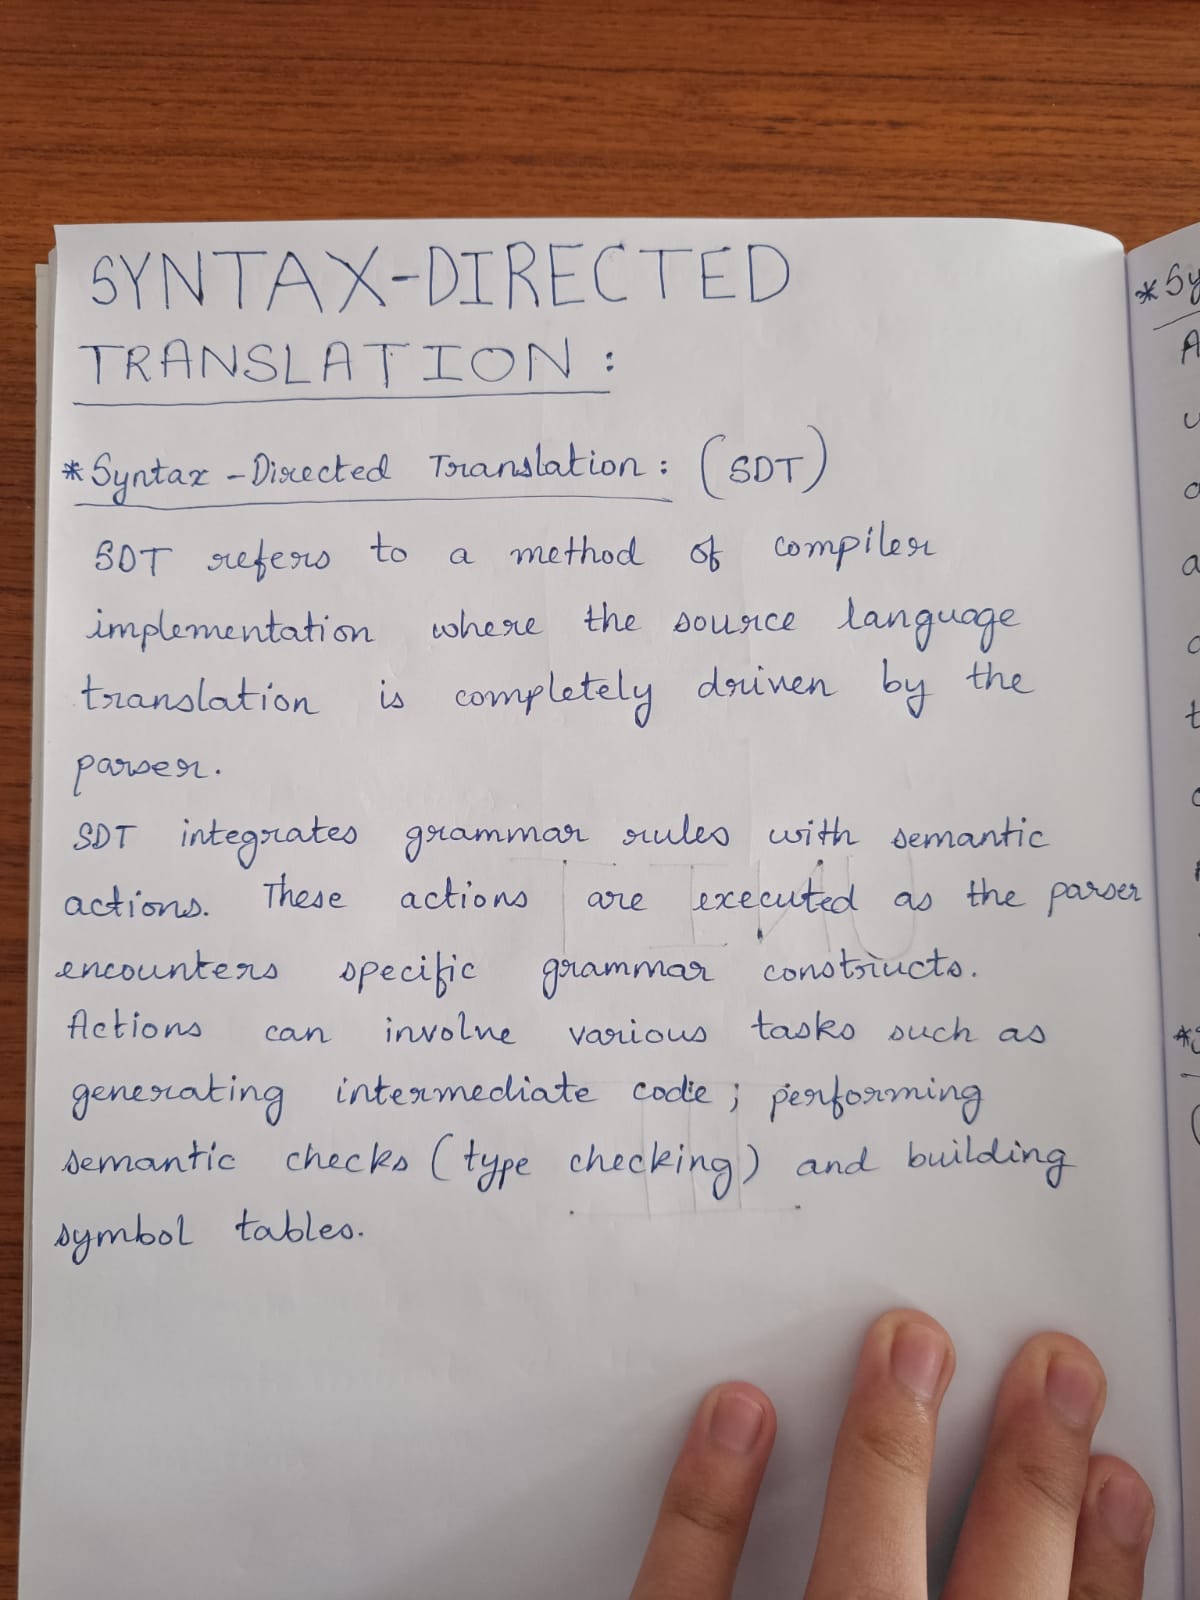 SYNTAX-DIRECTED
TRANSLATION :
* Syntax - Directed Translation : (SDT)
SDT refers to a method of compiler
implementation where the source language
translation is completely driven by the
parser.
SDT integrates grammar rules with semantic
actions. These actions are executed as the parser
encounters specific grammar constructs.
Actions can involve various tasks such as
generating intermediate code; performing
semantic checks (type checking) and building
symbol tables.
* Sy